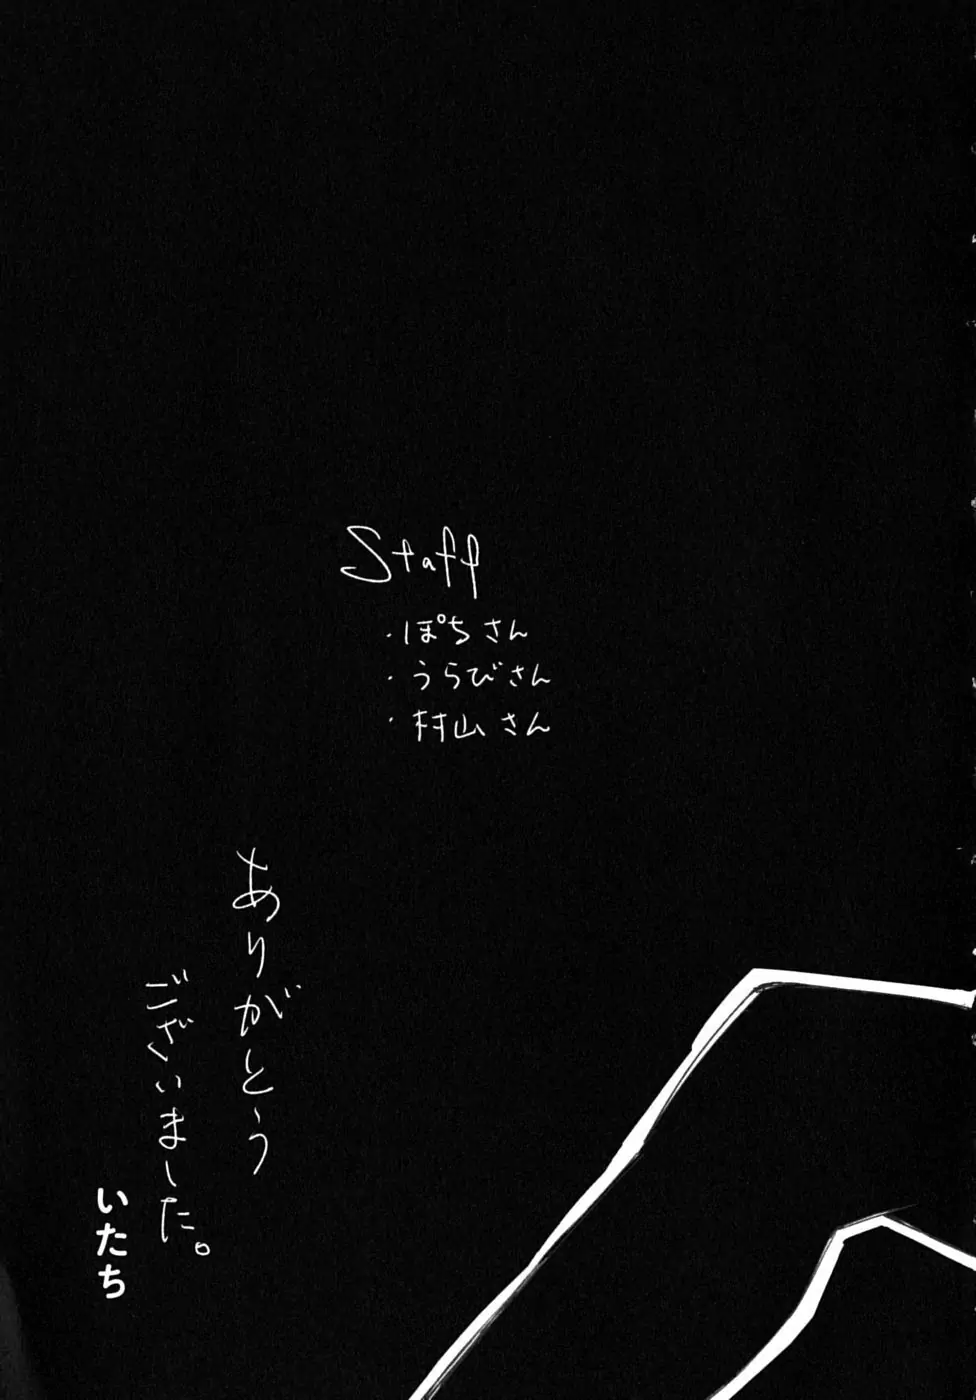 Staff
・ぽちさん
・うらびさん
・村山さん
ありがとう
ございました。
いたち